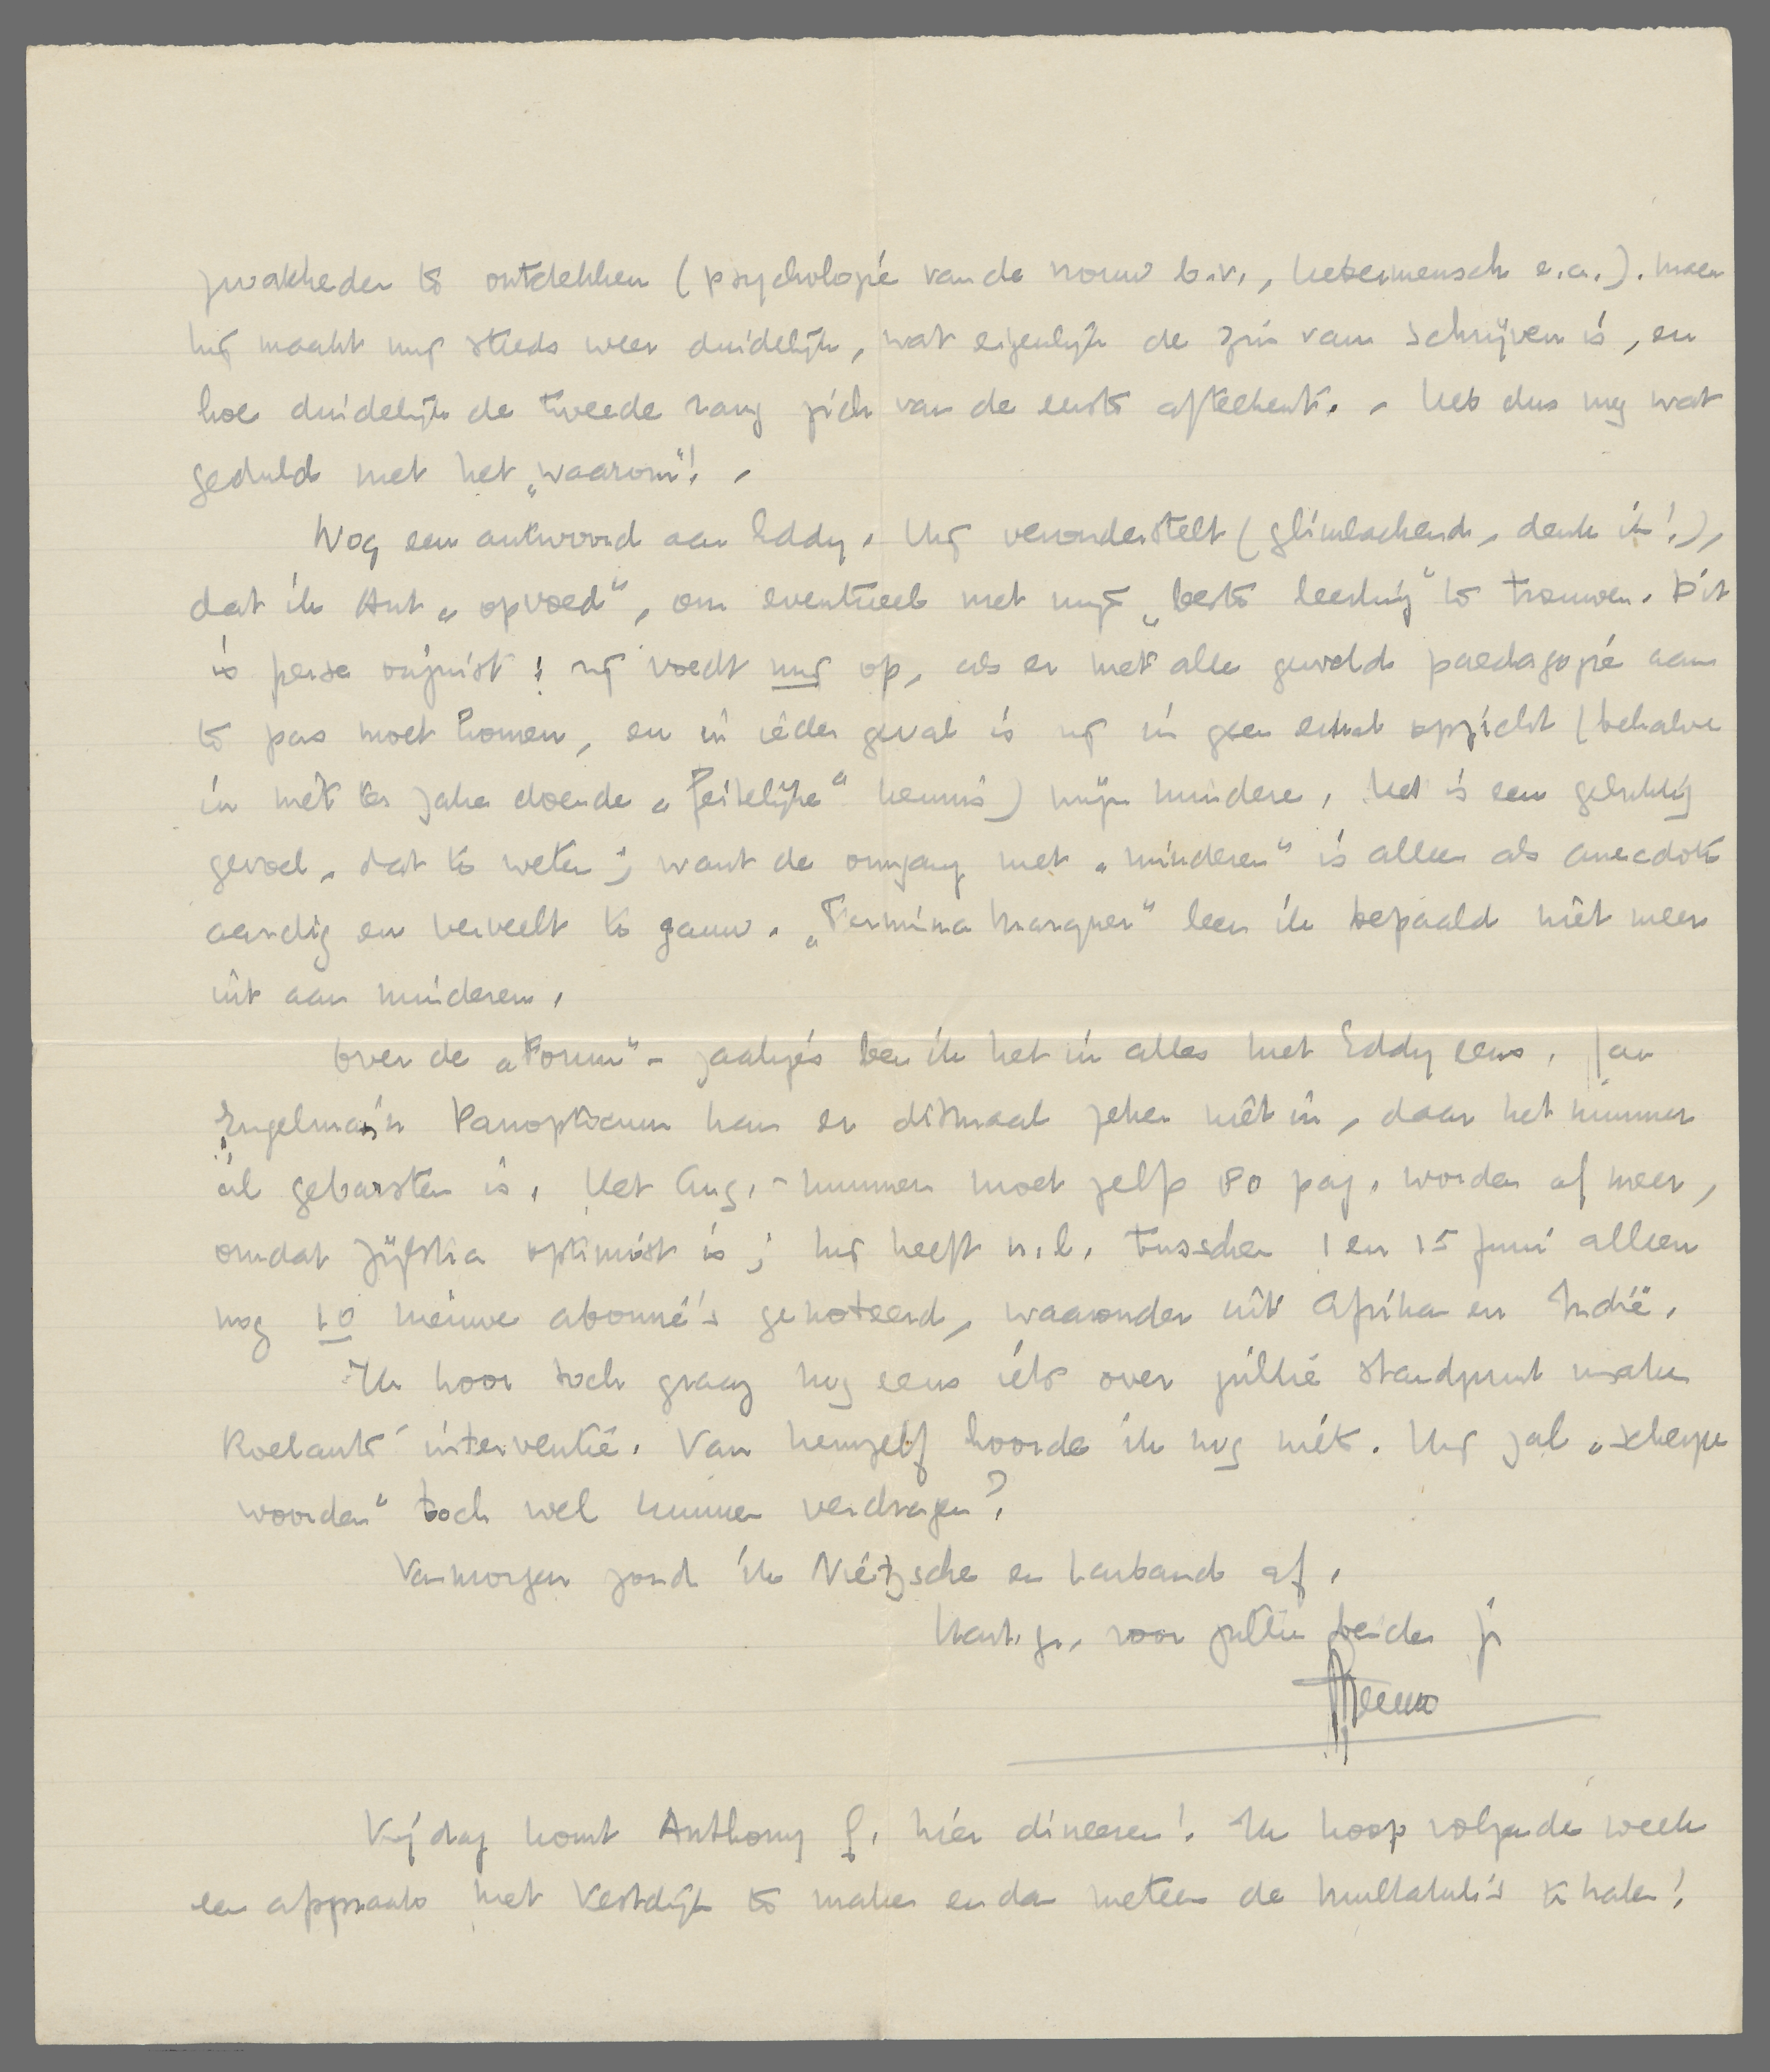 zwakheden te ontdekken (psychologie van de vrouw b.v., Uebermensch e.a.). Maar
hij maakt mij steeds weer duidelijk, wat eigenlijk de zin van schrijven is, en
hoe duidelijk de tweede rang zich van de eerste afteekent. - Heb dus nog wat
geduld met het „waarom"! -
Nog een antwoord aan Eddy. Hij veronderstelt (glimlachend, denk ik!),
dat ik Ant „opvoed", om eventueel met mijn „beste leerling" te trouwen. Dit
is perse onjuist: zij voedt mij op, als er met alle geweld paedagogie aan
te pas moet komen, en in ieder geval is zij in geen enkel opzicht (behalve
in niet ter zake doende „feitelijke" kennis) mijn mindere. Het is een gelukkig
gevoel, dat te weten; want de omgang met „minderen" is alleen als anecdote
aardig en verveelt te gauw. „Fermina Marquez" leen ik bepaald niet meer
uit aan minderen.
Over de „Forum"-zaakjes ben ik het in alles met Eddy eens. Jan
Engelman's Panopticum kan er ditmaal zeker niet in, daar het nummer
al gebarsten is. Het Aug.-nummer moet zelfs 80 pag. worden of meer,
omdat Zijlstra optimist is; hij heeft n.l. tusschen 1 en 15 Juni alleen
nog 10 nieuwe abonné's genoteerd, waaronder uit Afrika en Indië.
Ik hoor toch graag nog eens iets over jullie standpunt inzake
Roelants' interventie. Van hemzelf hoorde ik nog niets. Hij zal „scherpe
woorden" toch wel kunnen verdragen?
Vanmorgen zond ik Nietzsche en Larbaud af.
Hart. gr. voor jullie beiden je
Menno
Vrijdag komt Anthony f. hier dineeren! Ik hoop volgende week
een afspraak met Vestdijk te maken en dan meteen de Multatuli's te halen!